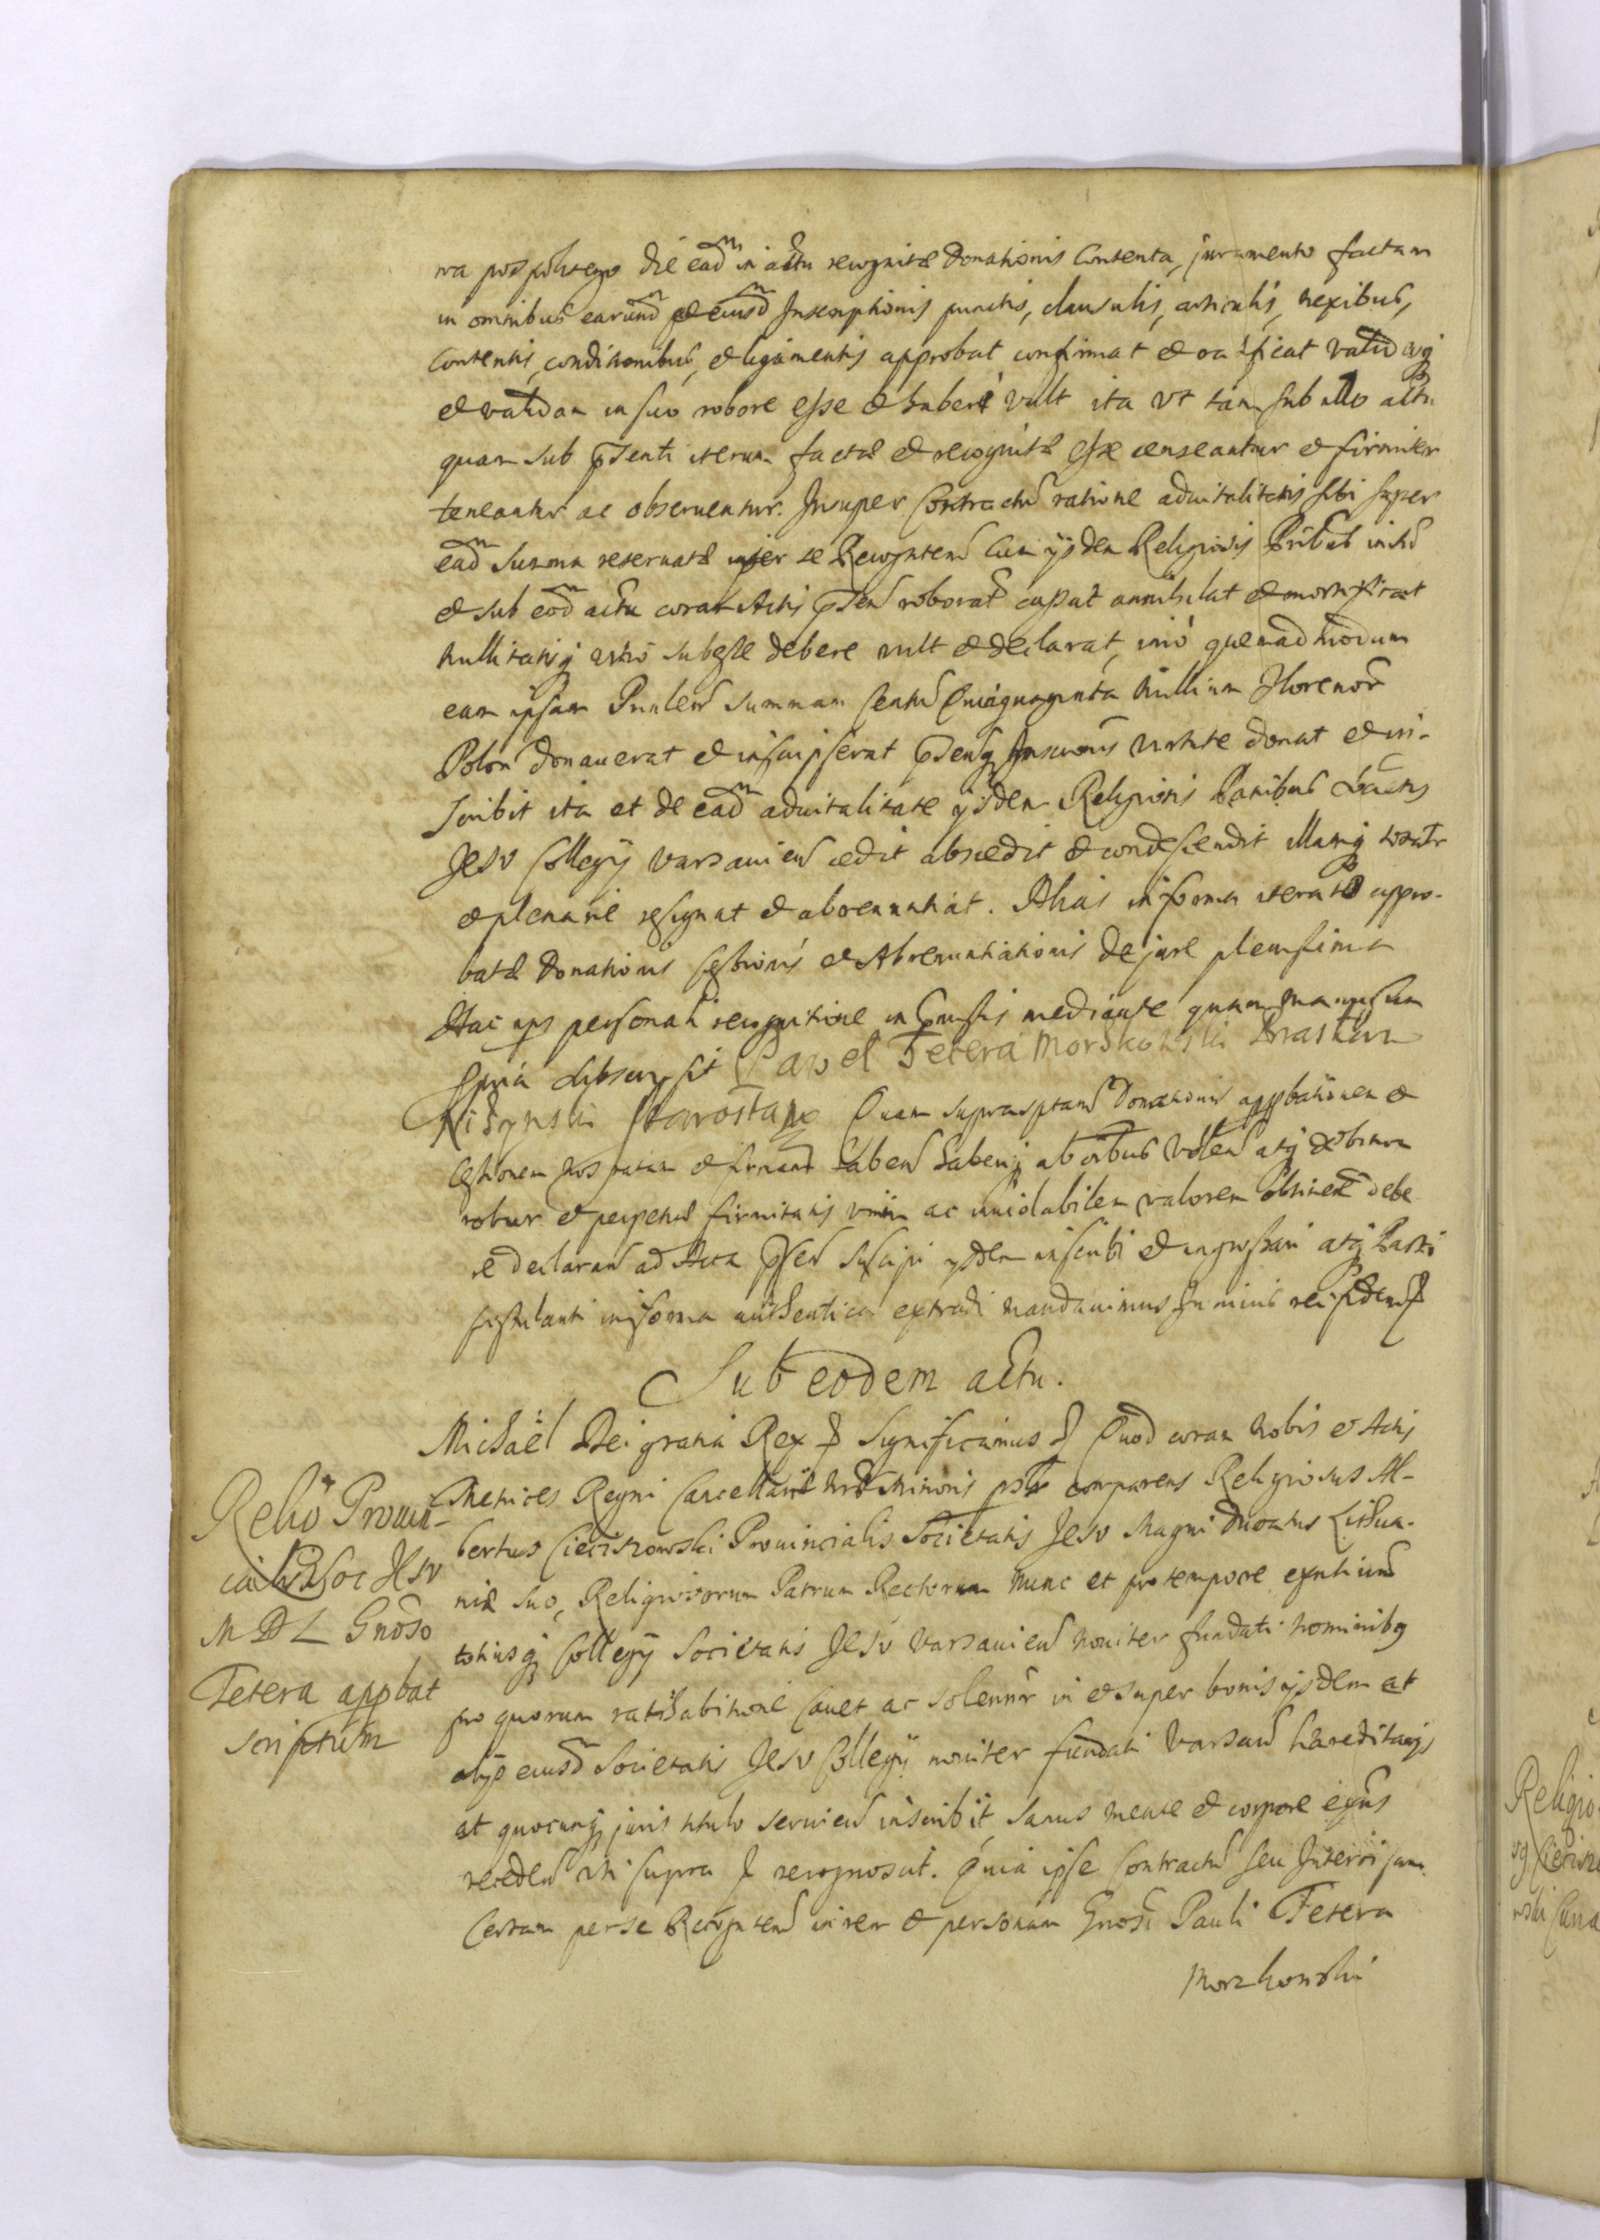 ra pospolitego die eadm in actu recognitæ Donationis Contenta, juramento factam
in omnibus earundm et eiusdm Inscriptionis punctis, clausulis, articulis, nexibus,
Contentis, conditionibus, et ligamentis approbat confirmat et ratificat
et validam in suo robore esse et haberi vult ita vt tam sub illo actu
quam sub pnti iterum factæ et recognitæ esse censeantur et firmiter
teneantur ac obseruentur. Insuper Contractū ratione aduitalitatis sibi super
eadm Summa reseruatæ inter se Recogntem cum ijsdem Religiosis Pribus initū
et sub eodm actu coram Actis pnteū roborat cassat annihilat et mortificat
nullitatiq subesse debere vult et declarat, imò quemadmodum
eam ipsam Summam Centū Quinquaginta Millium Florenor
Polon donauerat et inscripserat virtute donat et in-
scribit ita et de eadm aduitalitate ijsdem Religiosis Patribus Soctis
Jesv Collegij Varsauien cedit abscedit et condescendit illamq totalr
et plenarie resignat et abrenuntiat. Alias in forma iteratæ appro-
batæ Donationis Cessionis et Abrenuntiationis de jure plenissima
Hac ips personali recognitione in mediante quam manu sua
ppria subscripsit Pawel Tetera Morszkowski Braslaw
Niżynski Starosta Quam suprascptam Donationis appbationem et
Cessionem nos ratam et firmam haben ab oibus volen atq
robur et perpetuæ firmitatis vim ac inuiolabilem valorem obtinere debe
re declaran ad Acta suscipi ijsdem inscribi et ingrossari atq Parti
postulanti in forma authentica extradi mandauimus In cuius rei fidem
Sub eodem actu.
Michaël Dei gratia Rex Significamus Quod coram Nobis et Actis
Metrices Regni Cancellariæ Nræ Minoris psolr comparens Religiosus Al-
bertus Cieciszowski Prouincialis Societatis Jesv Magni Ducatus Lithua-
niæ suo, Religiosorum Patrum Rectorum nunc et pro tempore exntium
totiusq Collegij Societatis Jesv Varsauien nouiter fundati nominibq
pro quorum ratihabitione Cauet ac solennr in et super bonis ijsdem et
alijs eiusdm Societatis Jesv Collegij nouiter fundati Varsauien hæreditarijs
et quocunq juris titulo seruien inscribit, Sanus mente et corpore exns
receden vti supra recognouit. Quia ipse Contractū seu Intercisam
Certam per se Recogntem inter et personam Gnosi Pauli Tetera
Morzkowski
Relio Prouin-
cialis Soc Jesv
M D L Gnoso
Tetera appbat
scriptum
Religio-